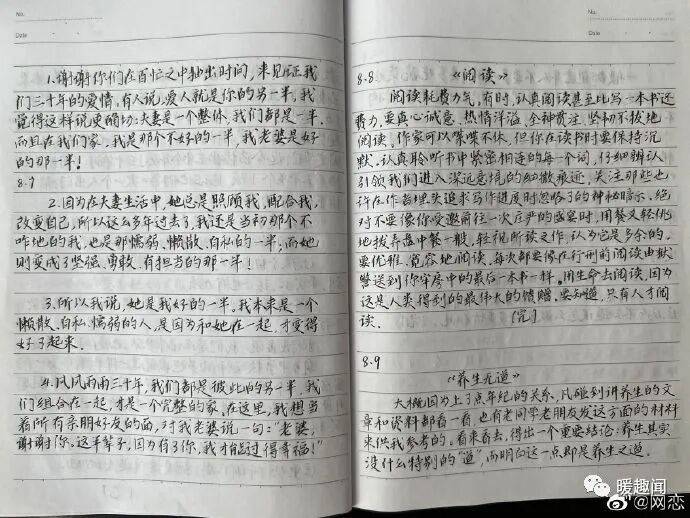 No.
Date
1.谢谢你们在百忙之中抽出时间,来见证我
们三十年的爱情,有人说,爱人就是你的另一半,我
觉得这样说更确切:夫妻是一个整体,我们都是一半,
而且在我们家,我是那个不好的一半,我老婆是好
的那一半!
8.7
2.因为在夫妻生活中,她总是照顾我,配合我,
改变自己,所以这么多年过去了,我还是当初那个不
咋地的我,也是那懦弱、懒散、自私的一半;而她
则变成了坚强、勇敢、有担当的那一半!
3.所以我说,她是我好的一半。我本来是一个
懒散、自私、懦弱的人,是因为和她在一起,才变得
好了起来.
4.风风雨雨三十年,我们都是彼此的另一半,我
们组合在一起,才是一个完整的家,在这里,我想当
着所有亲朋好友的面,对我老婆说一句:"老婆,
谢谢你。这半辈子,因为有了你,我才能过得幸福!"
No.
Date
8.8 《阅读》
阅读耗费力气,有时,认真阅读甚至比写一本书还
费力,要真心诚意、热情洋溢、全神贯注、坚韧不拔地
阅读,作家可以喋喋不休,但你在读书时要保持沉
默,认真聆听书中紧密相连的每一个词,仔细辨认
引领我们进入深远意境的细微痕迹,关注那些也
许在作者埋头追求写作进度时忽略了的神秘暗示,绝
对不要像你受邀前往一次庄严的盛宴时,用餐叉轻佻
地拔弄盘中餐一般,轻视所读之作,认为它是多余的。
要优雅、宽容地阅读,每次都要像在行刑前阅读由狱
警送到你牢房中的最后一本书一样。用生命去阅读,因为
这是人类得到的最伟大的馈赠。要知道,只有人才阅
读. [完]
8.9
《养生无道》
大概因为上了点年纪的关系,凡碰到讲养生的文
章和资料都看一看,也有老同学老朋友发这方面的材料
来供我参考的。看来看去,得出一个重要结论:养生其实
没什么特别的"道",而明白这一点即是养生之道.
暖趣闻
@网恋